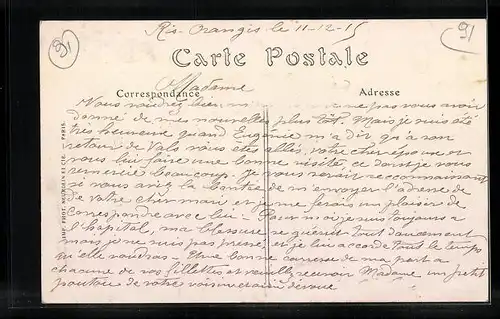 91
Ris-Orangis le 11-12-15
91
Carte Postale
Correspondance
Adresse
Madame
Vous voudrez bien ne pas vous avoir
donné de mes nouvelles plus tôt. Mais je suis été
très heureuse quand Eugénie m'a dit qu'à son
retour de Vals vous êtes allés, votre cher époux et
vous lui faire une bonne visite, ce dont je vous
remercie beaucoup. Je vous serais reconnaissant
si vous aviez la bonté de m'envoyer l'adresse de
de votre cher mari et je me ferais un plaisir de
correspondre avec lui - Pour moi je suis toujours à
l'hôpital, ma blessure se guérit tout doucement
mais je ne suis pas pressé, et je lui accorde tout le temps
qu'elle voudras - Et une bonne caresse de ma part a
chacune de vos fillettes et veuillez recevoir Madame un petit
de votre dévoué
IMP. PHOT. NEURDEIN ET CIE. - PARIS